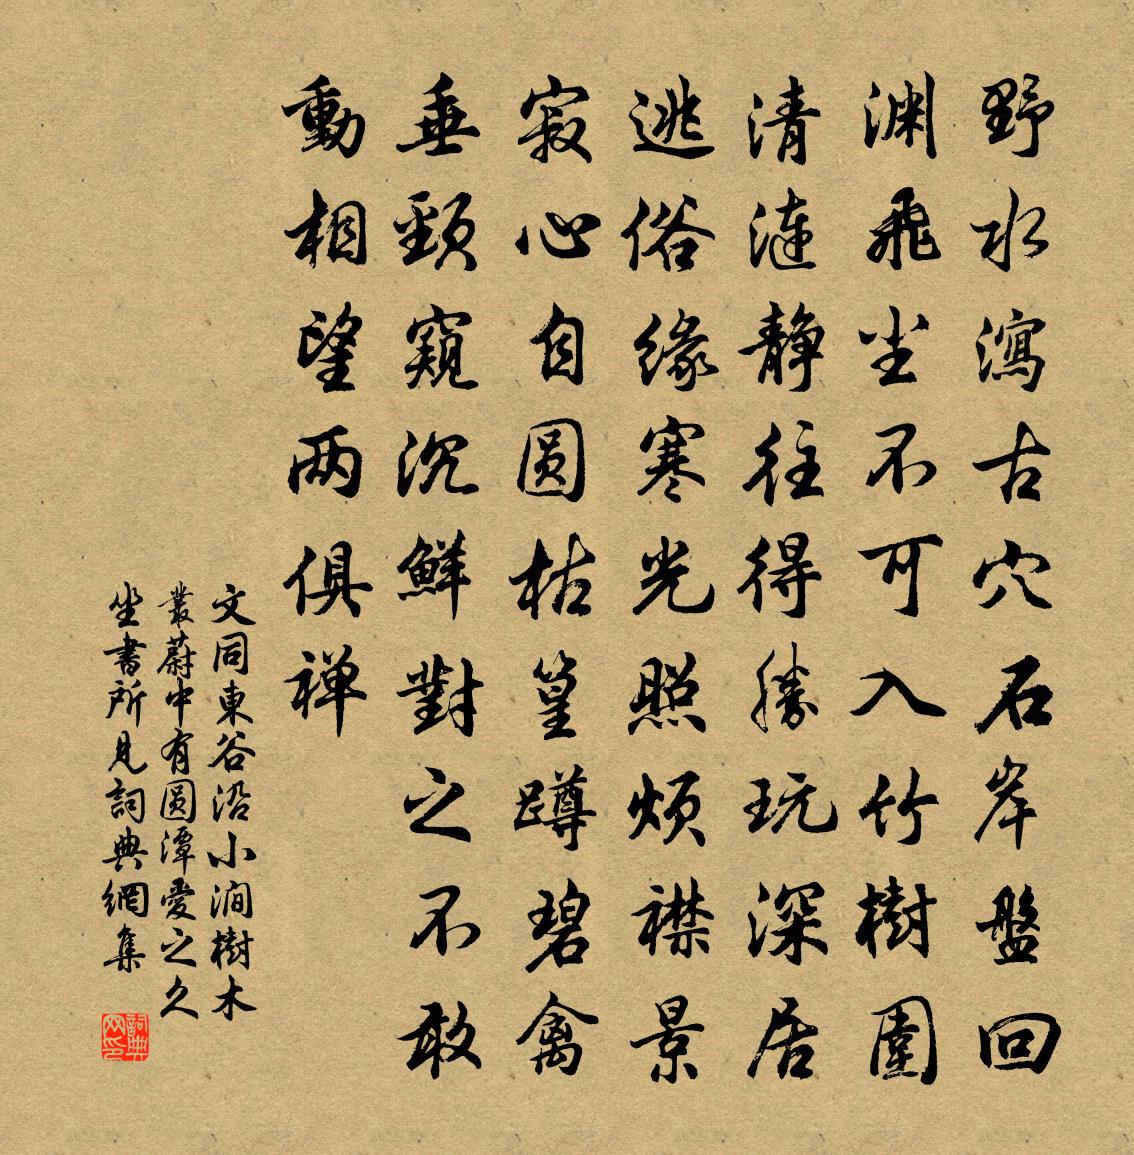 野水瀉古穴石岸盤回
渊飛坐不可入竹樹圍
清漣静往得勝玩深居
逃俗缘寒光照煩襟景
寂心自圆枯篁蹲碧禽
垂頸窺沉鮮對之不敢
動相望两俱禅
文同東谷沿小澗樹木
叢蔚中有圆潭愛之久
坐書所見詞典網集
詞典
网印